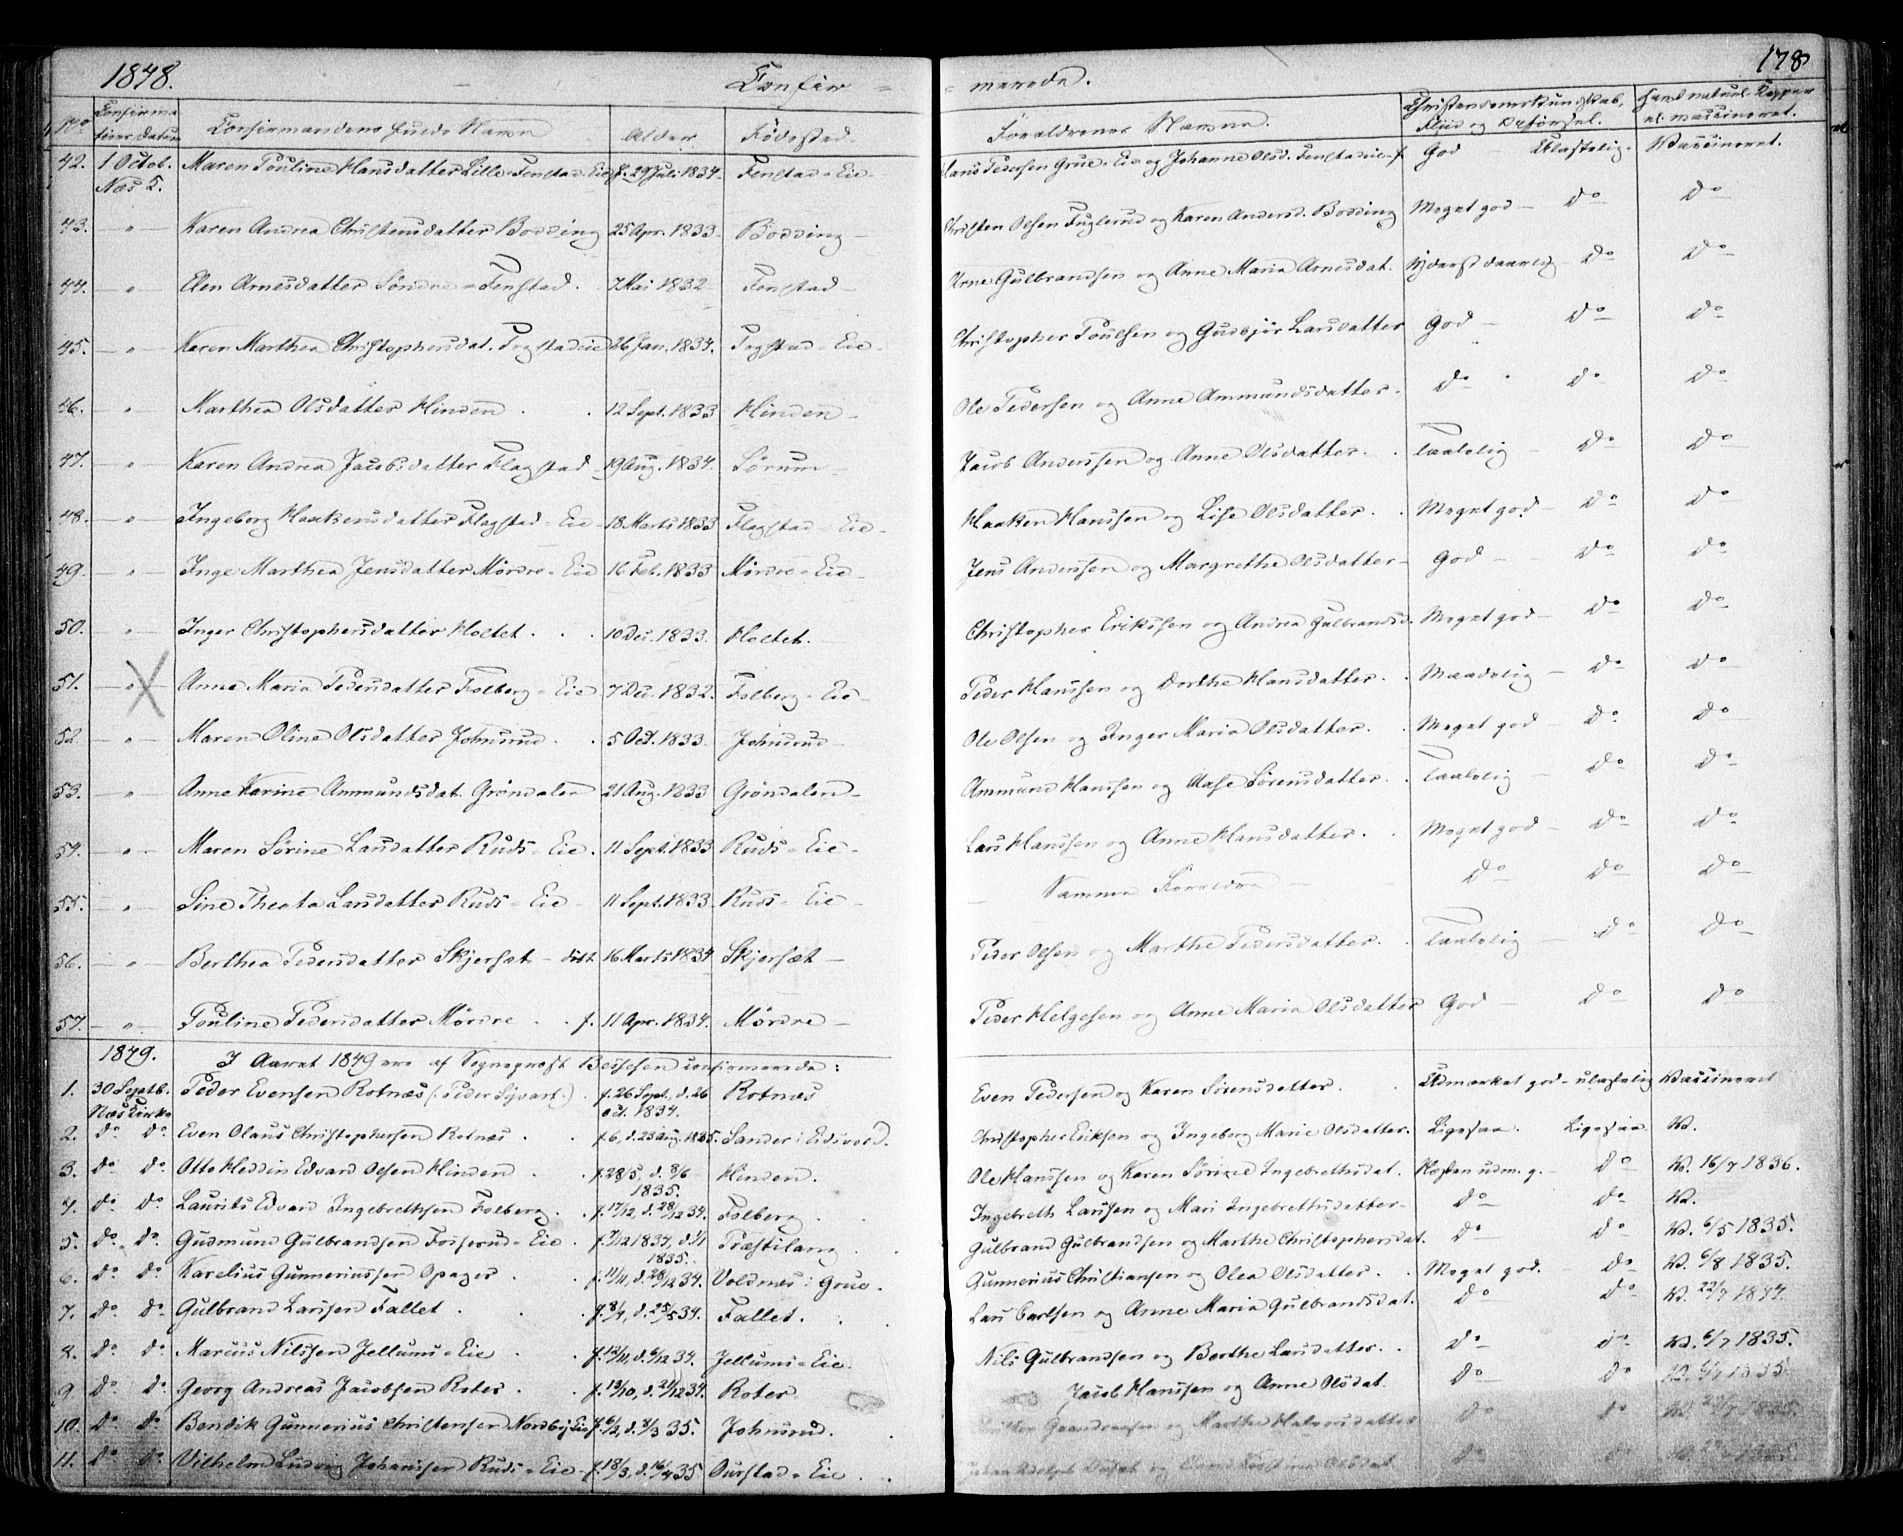 1848. Confir = = merede. 178
No Confirmations Datum Confirmandens fulde Navn Alder Fødested. Forældrenes Navne. Christendomskundskab, Flid og Opførsel. Havd naturl. Kopper el. vaccineret.
42. 1 Octob. Næs K. Maren Pouline Hansdatter Lille-Fenstad-Eie f. 29 Juli 1834. Fenstad-Eie- Hans Pedersen Grue-Eie og Johanne Olsd. Fenstadeie God - Ulastelig- Vaccineret.
43. " Karen Andrea Christensdatter Bodding 25 Apr. 1833 Bodding - Christen Olsen Fuglerud og Karen Andersd. Bodding Meget god - do do
44. " Elen Arnesdatter Søndre-Fenstad. 7 Mai 1832 Fenstad - Arne Gulbrandsen og Anne Maria Arnesdat. Yderst daarlig - do do
45. " Karen Marthea Christophersdat. Fogstadeie 26 Jan. 1834. Fogstad-Eie- Christopher Poulsen og Gudbjør Larsdatter God - do do
46. " Marthea Olsdatter Hinden. 12 Sept. 1833 Hinden - Ole Pedersen og Anne Ammundsdatter. do do do
47. " Karen Andrea Jacobsdatter Flagstad 19 Aug. 1834. Sørum - Jacob Anderssen og Anne Olsdatter. Taalelig - do do
48. " Ingeborg Haakensdatter Flagstad-Eie 18 Marts 1833 Flagstad-Eie- Haaken Hanssen og Lise Olsdatter. Meget god - do do
49. " Inge Marthea Jensdatter Mørdre-Eie 16 Feb. 1833 Mørdre-Eie- Jens Anderssen og Margrethe Olsdatter- God - do do
50. " Inger Christophersdatter Holtet. 10 Dec. 1833. Holtet. Christopher Erikssen og Andrea Gulbrandsd. Meget god - do do
51. " X Anne Maria Pedersdatter Folberg-Eie 7 Dec. 1832. Folberg-Eie- Peder Hanssen og Dorthe Hansdatter. Maadelig - do do
52. " Maren Oline Olsdatter Johnsrud. 5 Oct. 1833. Johnsrud - Ole Olsen og Inger Maria Olsdatter. Meget god do do
53. " Anne Karine Ammundsdat. Grøndalen 21 Aug. 1833 Grøndalen- Ammund Hanssen og Aase Sørensdatter. Taalelig - do do
54. " Maren Sørine Larsdatter Ruds-Eie. 11 Sept. 1833 Ruds-Eie- Lars Hanssen og Anne Hansdatter. Meget god - do do
55. " Sine Theata Larsdatter Ruds-Eie- 11 Sept. 1833 Ruds-Eie- Samme Forældre - do do do
56. " Berthea Pedersdatter Skjersæt - født 16 Marts 1834 Skjersæt - Peder Olsen og Marthe Pedersdatter. Taalelig - do do
57. " Pouline Pedersdatter Mørdre. f. 11 Apr. 1834. Mørdre - Peder Helgesen og Anne Maria Olsdatter God - do do
1849. I Aaret 1849 ere af Sognepræst Bessesen confirmerede:
1. 30 Septb. Næs Kirke Peder Evensen Rotnæs (: Peder Syvert:). f. 26 Sept. d. 26 oct. 1834. Rotnæs Even Pedersen og Karen Sørensdatter. Udmærket god - ulastelig Vaccineret
2. do do Even Olaus Christophersen Rotnæs. f. 6, d. 23 Aug. 1835. Sander i Eidsvold. Christopher Eriksen og Ingeborg Marie Olsdatter. Ligesaa. Ligesaa V.
3. do do Otto Heddin Edvard Olsen Hinden. f. 28/5, d. 8/6 1835. Hinden. Ole Hanssen og Karen Sørine Ingebrethsdat. Næsten udm. g. - do V. 16/7 1836.
4. do do Laurits Edvard Ingebrethsen Folberg. f. 17/12, d. 28/12 34. Folberg. Ingebreth Larssen og Mari Ingebrethsdatter- do do V.
5. do do Gudmund Gulbrandsen Fosserud-Eie. f. 7/12 1834, d. 1/1 1835. Præstilang Gulbrand Gulbrandsen og Marthe Christophersdat. do do V. 6/5 1835.
6. do do Karelius Gunneriussen Opager. f. 11/11, d. 26/12 34. Voldnes i Grue. Gunnerius Christiansen og Olea Olsdatter. Meget god. do V. 6/8 1835.
7. do do Gulbrand Larssen Fallet. f. 8/4, d. 25/5 34. Fallet. Lars Carlsen og Anne Maria Gulbrandsdat. do do V. 22/7 1844.
8. do do Marcus Nilssen Jellums-Eie f. 12/11, d. 6/12 34. Jellums-Eie. Nils Gulbrandsen og Berthe Larsdatter. do do V. 6/7 1835.
9 do do Georg Andreas Jacobsen Roter. f. 13/10, d. 21/12 34. Roter. Jacob Hanssen og Anne Olsdat. do do V. 6/7 1835.
10. do do Bendik Gunnerius Christensen Nordbyeie f. 6/2, d. 8/3 35. Johnsrud. og Marthe Halvorsdatter do do V. 1835.
11. do do Vilhelm Ludvig Johanssen Ruds-Eie- f. 18/3, d. 16/4 35 Ourstad-Eie. Johan Adolph og Kirstine Olsdat. do do V. 1835.